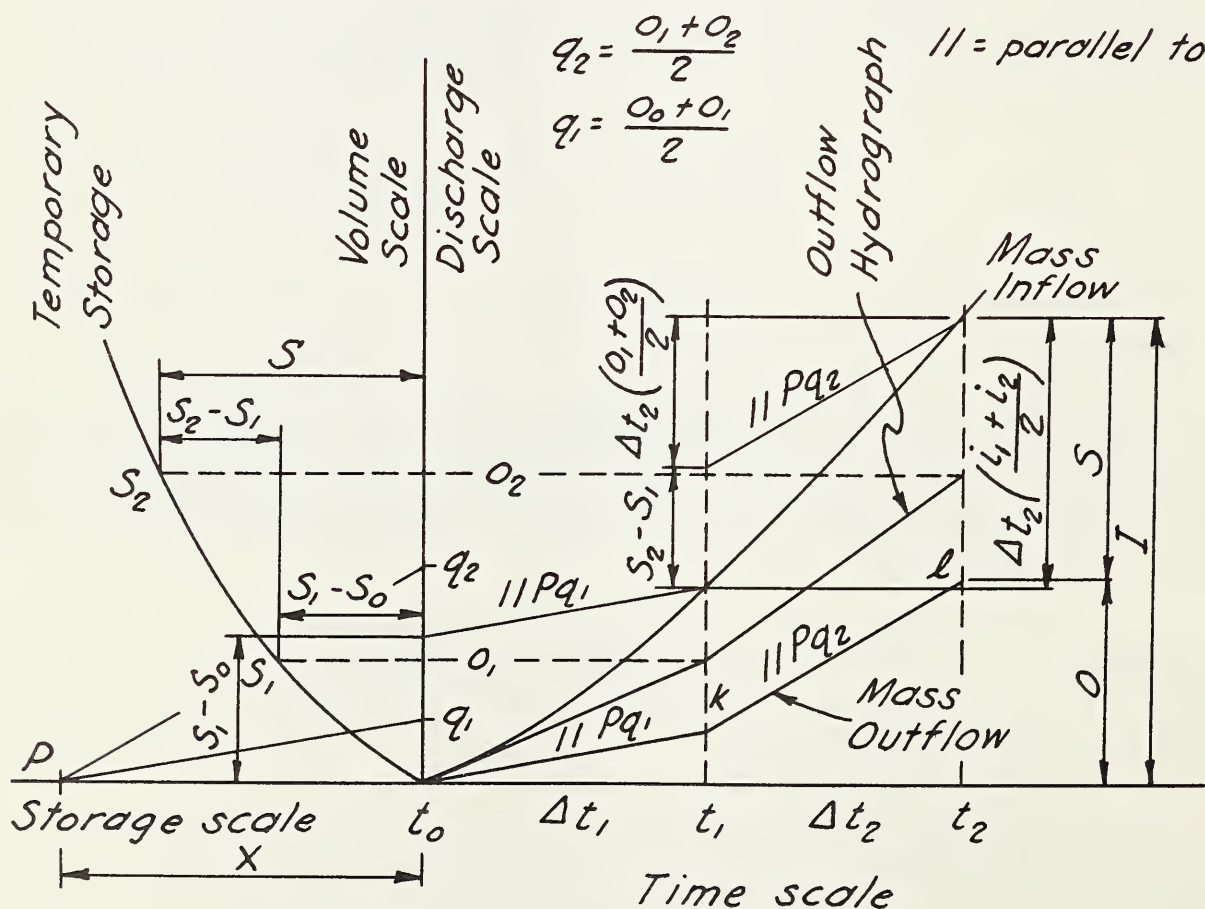 q₂ = (O₁ + O₂)/2
q₁ = (O₀ + O₁)/2
// = parallel to
Temporary
Storage
Volume
Scale
Discharge
Scale
Outflow
Hydrograph
Mass
Inflow
S
S₂ - S₁
S₂
O₂
S₁ - S₀
q₂
// Pq₁
S₁ - S₀
S₁
O₁
q₁
P
Δt₂((O₁ + O₂)/2)
S₂ - S₁
// Pq₂
Δt₂((i₁ + i₂)/2)
S
I
l
// Pq₂
O
k
// Pq₁
Mass
Outflow
Storage scale
t₀
Δt₁
t₁
Δt₂
t₂
X
Time scale